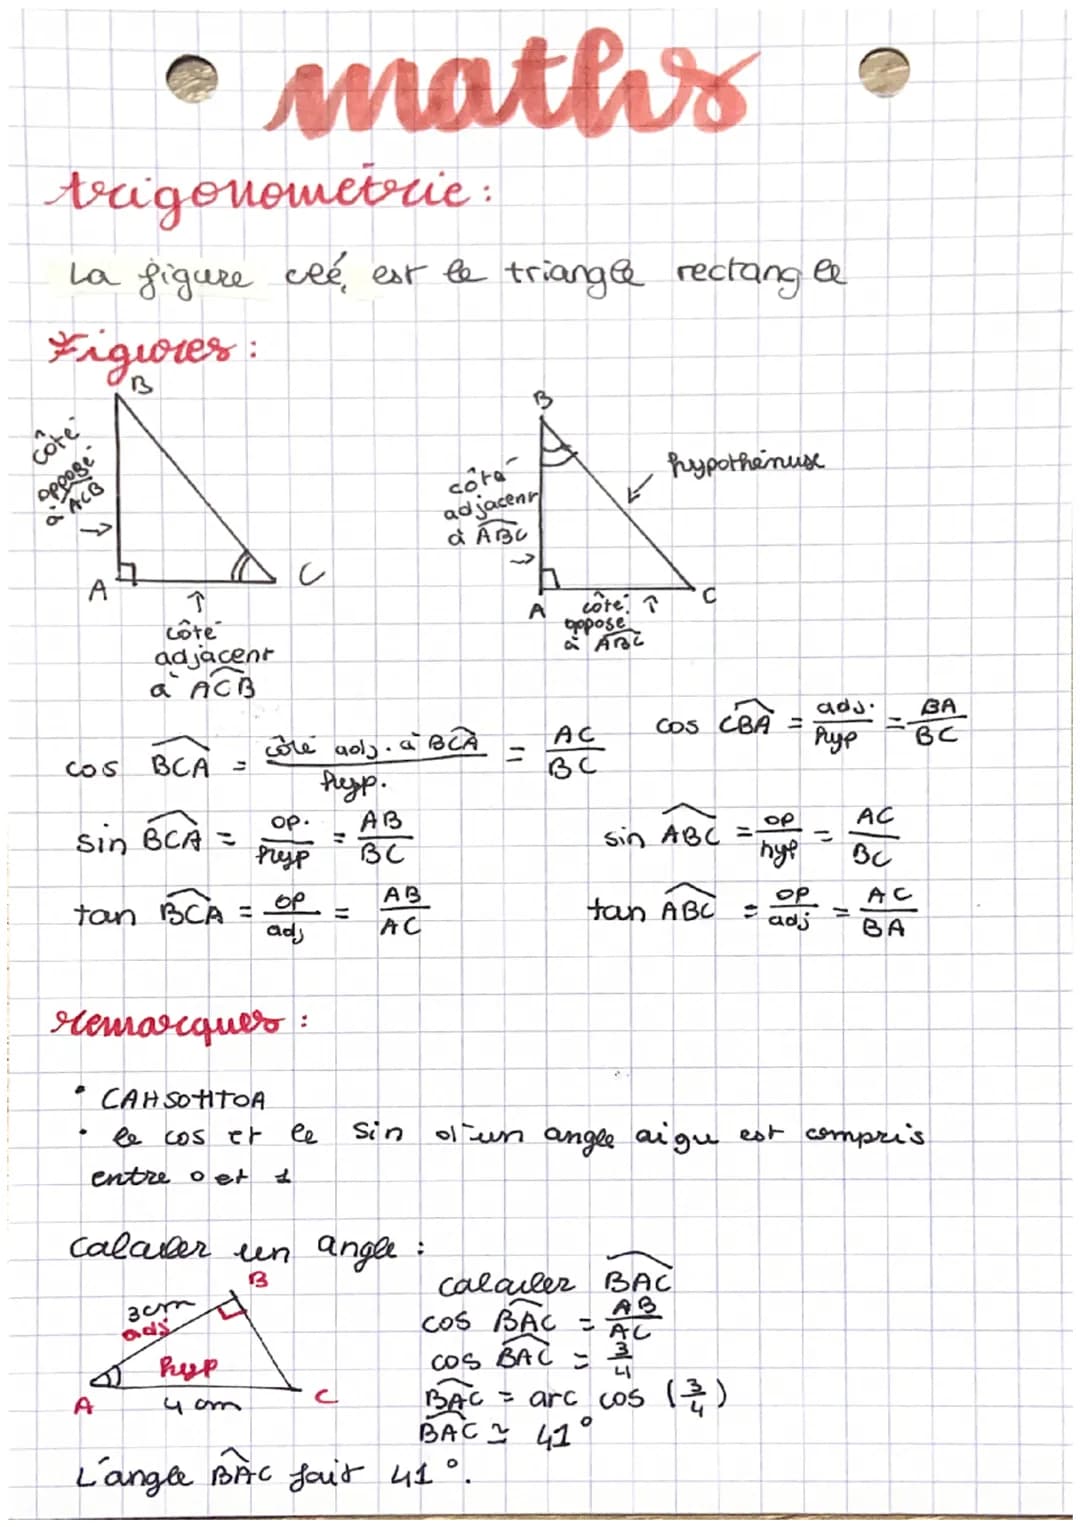 maths
trigonométrie :
La figure clé, est le triangle rectangle
Figures :
B
côté
opposé
à ACB
→
A
C
↑
côté
adjacent
à ACB
B
hypothénuse
côté
adjacent
à ABC
→
A
C
côté ↑
opposé
à ABC
cos BCA = côté adj. à BCA / hyp. = AC / BC
cos CBA = adj. / hyp = BA / BC
sin BCA = op. / hyp = AB / BC
sin ABC = op / hyp = AC / BC
tan BCA = op / adj = AB / AC
tan ABC = op / adj = AC / BA
remarques :
• CAHSOHTOA
• le cos et le sin d'un angle aigu est compris
entre 0 et 1
calculer un angle :
B
3cm
adj
hyp
A
4 cm
C
calculer BAC
cos BAC = AB / AC
cos BAC = 3 / 4
BAC = arc cos (3/4)
BAC ≃ 41°
L'angle BAC fait 41°.